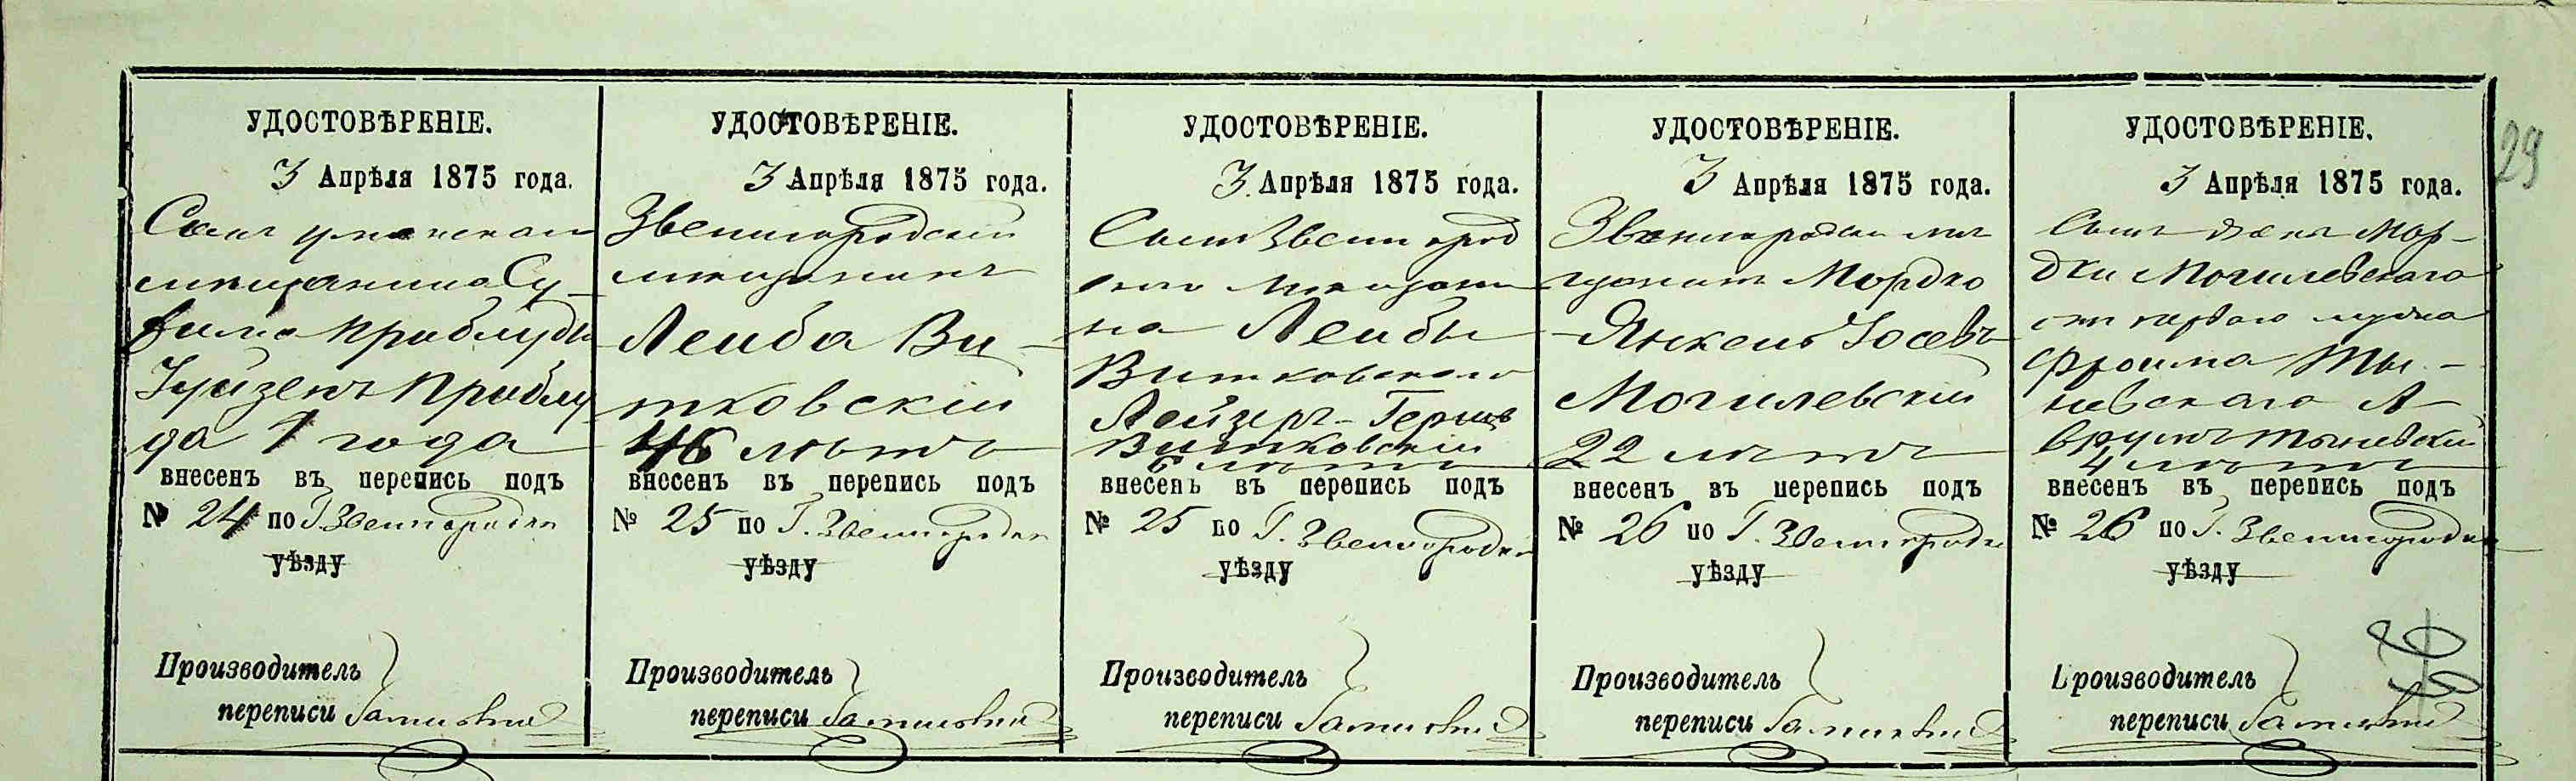 29
УДОСТОВѢРЕНІЕ.
3 Апрѣля 1875 года.
Сынъ уманскаго
мѣщанина Су-
Приблуды
Приблу
да 1 года
внесенъ въ перепись подъ
№ 24 по Г. Звенигородкѣ
уѣзду
Производитель
переписи
УДОСТОВѢРЕНІЕ.
3 Апрѣля 1875 года.
Звенигородскій
мѣщанинъ
Лейба Ви-
тковскій
46 лѣтъ
внесенъ въ перепись подъ
№ 25 по Г. Звенигородкѣ
уѣзду
Производитель
переписи
УДОСТОВѢРЕНІЕ.
3 Апрѣля 1875 года.
Сынъ Звенигород
скаго мѣщани
на Лейбы
Витковскаго
Лейзеръ-Гершъ
Витковскій
6 лѣтъ
внесенъ въ перепись подъ
№ 25 по Г. Звенигородкѣ
уѣзду
Производитель
переписи
УДОСТОВѢРЕНІЕ.
3 Апрѣля 1875 года.
Звенигородскій мѣ
щанинъ Мордко
Янкель Іосевъ
Могилевскій
22 лѣтъ
внесенъ въ перепись подъ
№ 26 по Г. Звенигородкѣ
уѣзду
Производитель
переписи
УДОСТОВѢРЕНІЕ.
3 Апрѣля 1875 года.
Сынъ жены Мор-
дки Могилевскаго
отъ перваго мужа
Фроима Ты-
невскаго А-
врумъ Тыневскій
4 лѣтъ
внесенъ въ перепись подъ
№ 26 по Г. Звенигородкѣ
уѣзду
Производитель
переписи